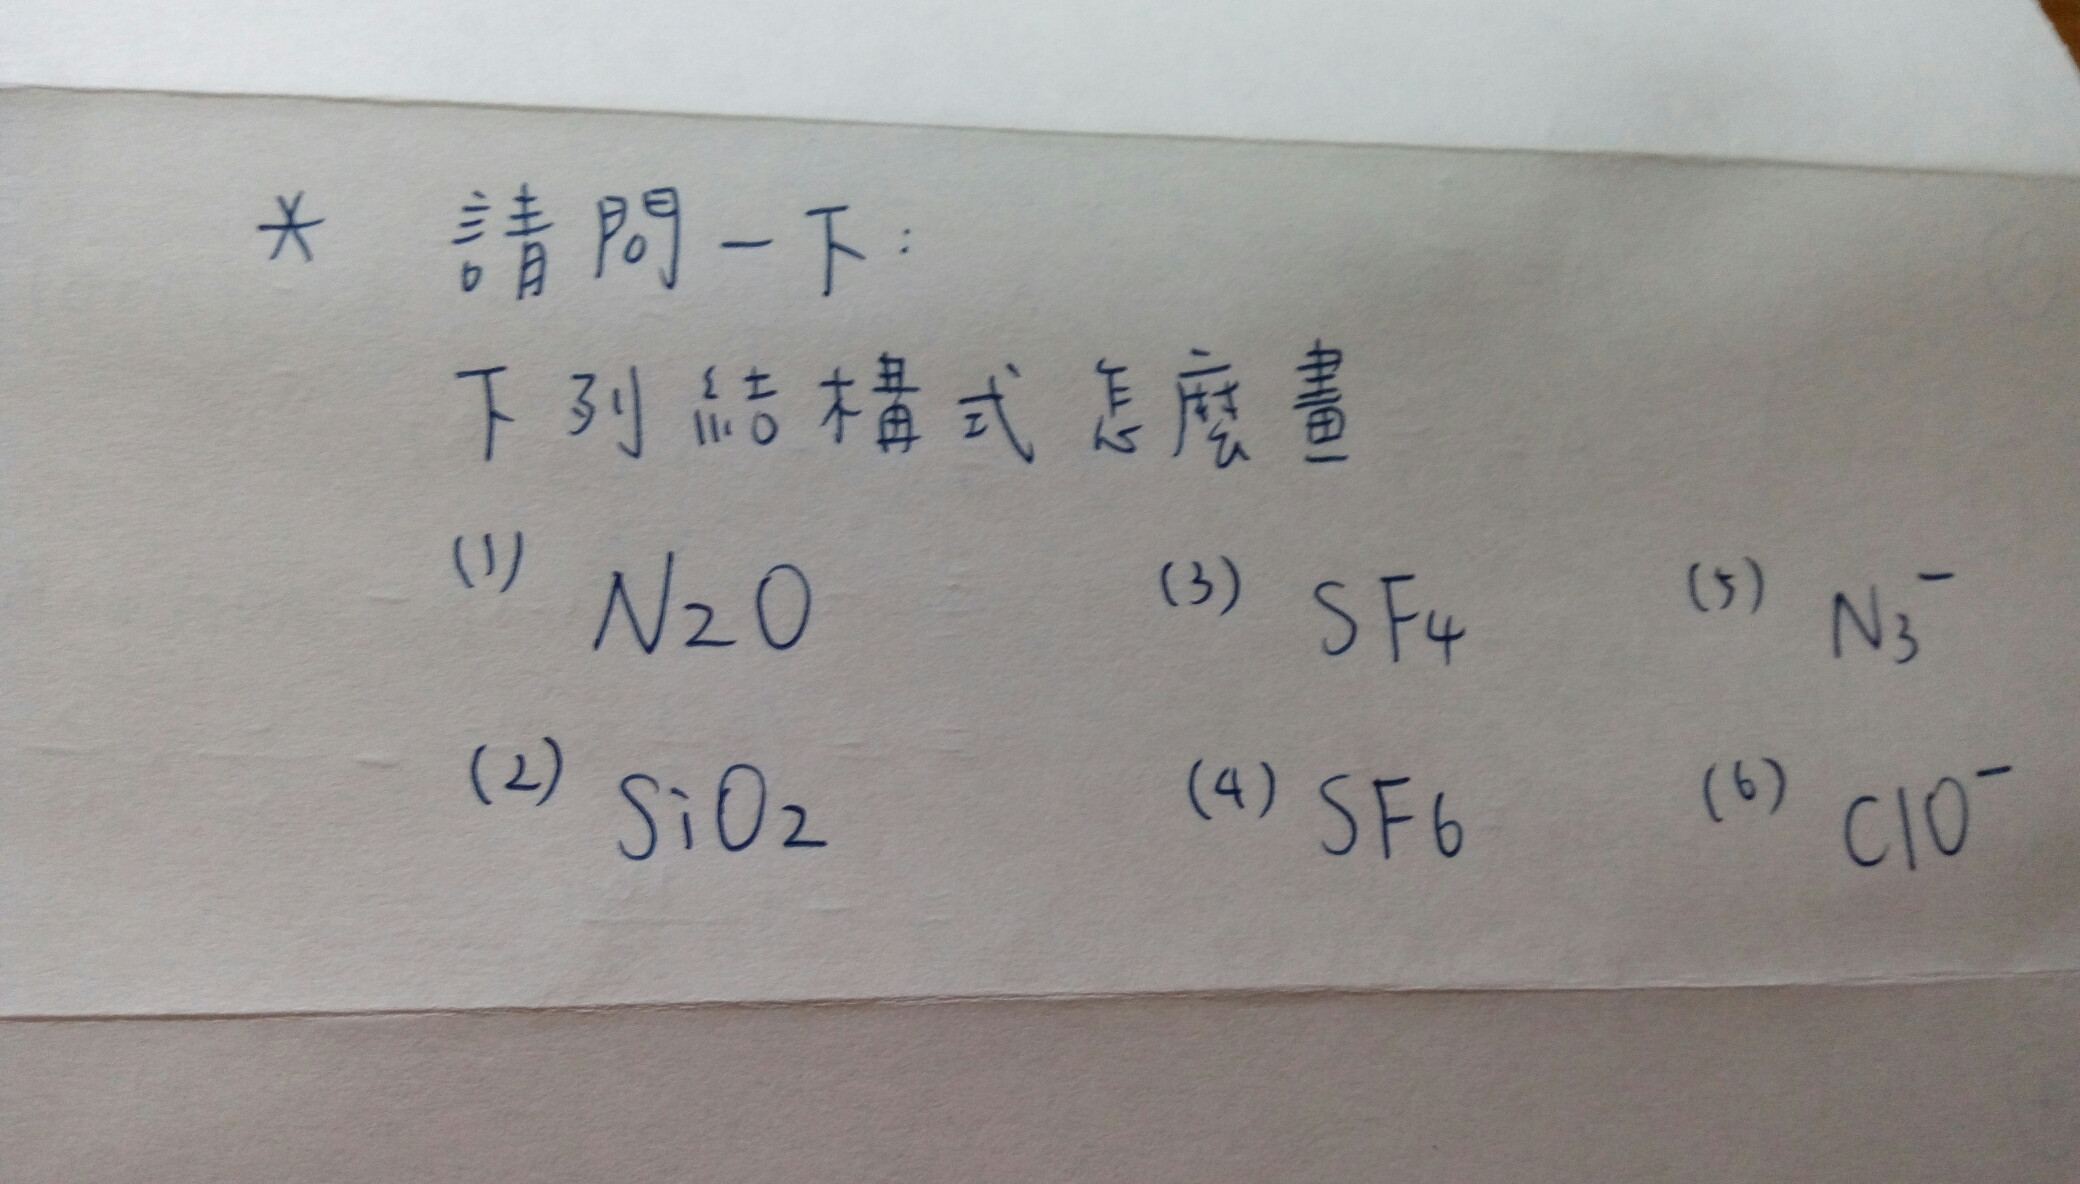 * 請問一下:
下列結構式怎麼畫
(1) N2O (3) SF4 (5) N3-
(2) SiO2 (4) SF6 (6) ClO-